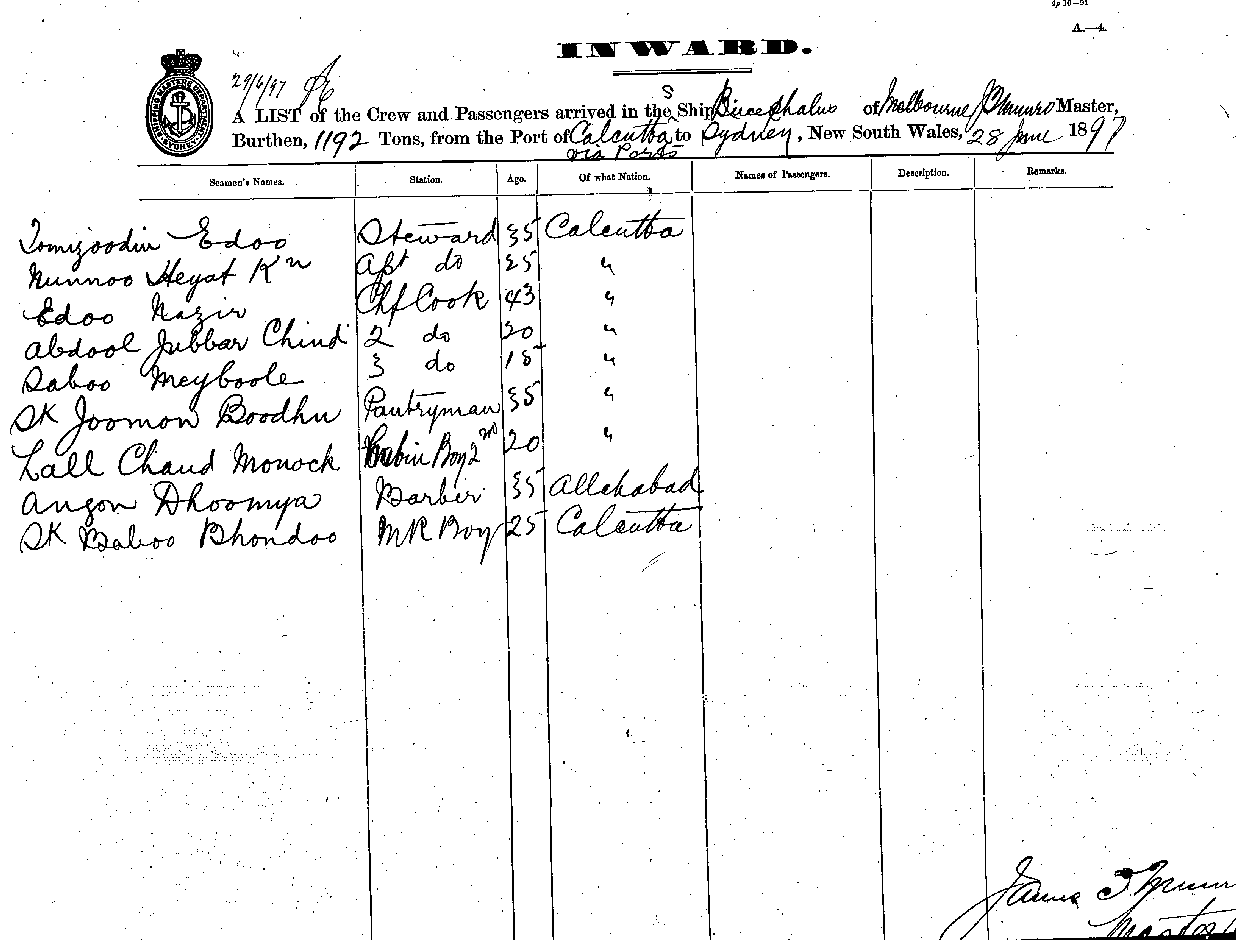 A.—4.
INWARD.
29/6/97
A LIST of the Crew and Passengers arrived in the S Ship Bucephalus of Melbourne, Munro Master,
Burthen, 1192 Tons, from the Port of Calcutta to Sydney, New South Wales, 28 June 1897
via Ports
Seamen's Names. Station. Age. Of what Nation. Names of Passengers. Description. Remarks.
Tomizoodin Edoo Steward 35 Calcutta
Nunnoo Heyat Kn Ast do 25 "
Edoo Nazir Chf Cook 43 "
Abdool Jubbar Chind 2 do 20 "
Saboo Meyboole 3 do 18 "
SK Joomon Boodhu Pantryman 35 "
Lall Chand Monock Cabin Boy 2nd 20 "
Angon Dhoomya Barber 35 Allahabad
SK Baboo Bhondoo MR Boy 25 Calcutta
James Munro
Master